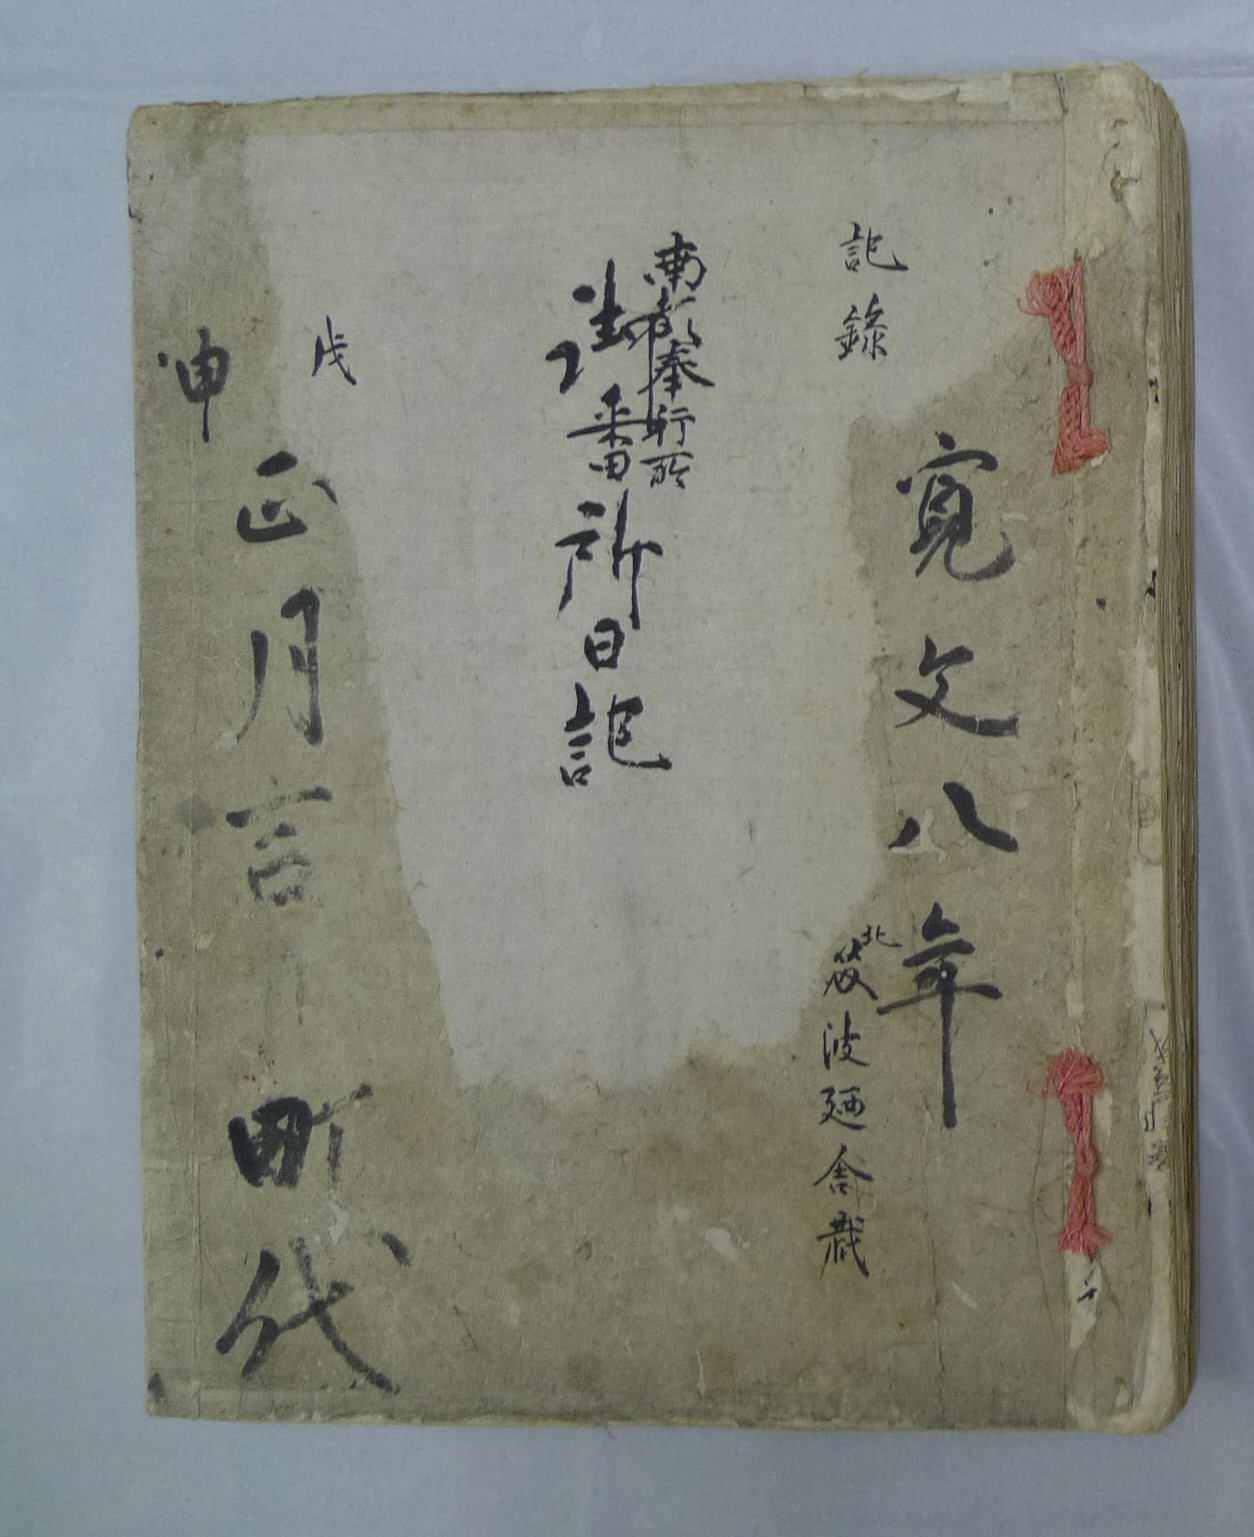 記録
寛文八年
北
筱波廼舎蔵
南都奉行所
御番所日記
戊
申
正月吉
町代